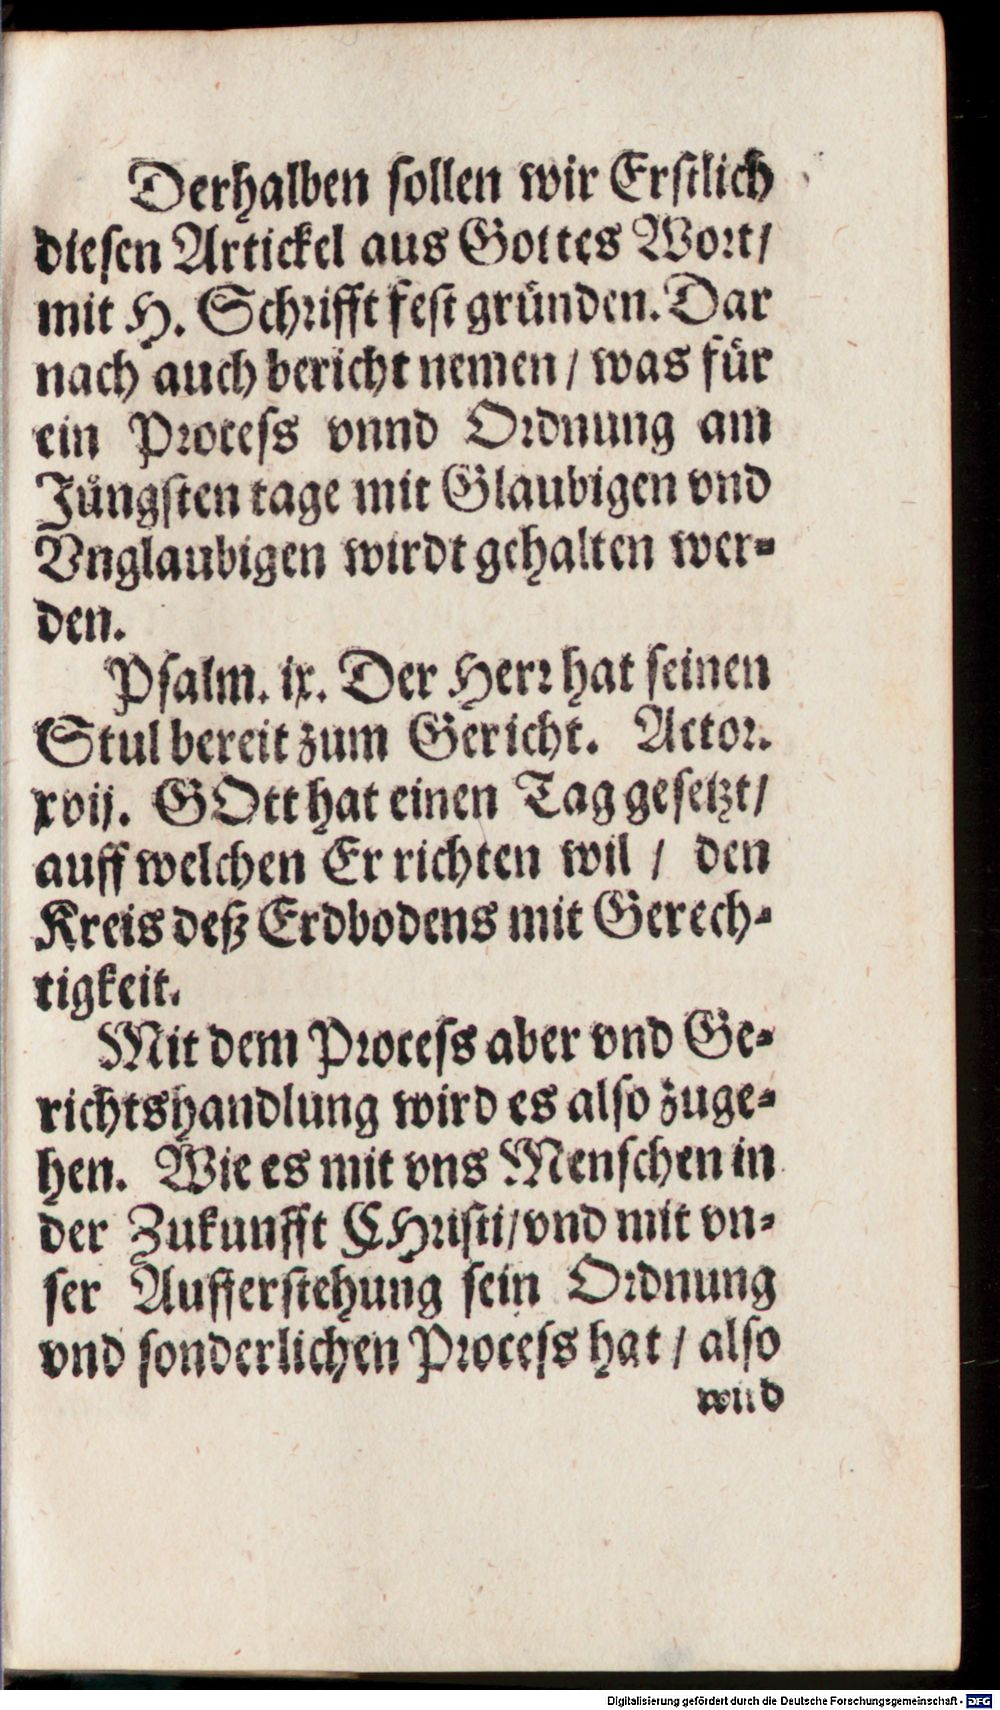 Derhalben sollen wir Erstlich
diesen Artickel aus Gottes Wort/
mit H. Schrifft fest gründen. Dar
nach auch bericht nemen / was für
ein Process vnnd Ordnung am
Jüngsten tage mit Glaubigen vnd
Vnglaubigen wirdt gehalten wer-
den.
Psalm. ix. Der Herr hat seinen
Stul bereit zum Gericht. Actor.
xvij. GOtt hat einen Tag gesetzt/
auff welchen Er richten wil / den
Kreis deß Erdbodens mit Gerech-
tigkeit.
Mit dem Process aber vnd Ge-
richtshandlung wird es also zuge-
hen. Wie es mit vns Menschen in
der Zukunfft CHristi/vnd mit vn-
ser Aufferstehung sein Ordnung
vnd sonderlichen Process hat / also
wird
Digitalisierung gefördert durch die Deutsche Forschungsgemeinschaft - DFG